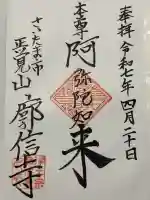 奉拝 令和七年四月二十日
本尊
阿弥陀如来
さいたま市
廓信寺